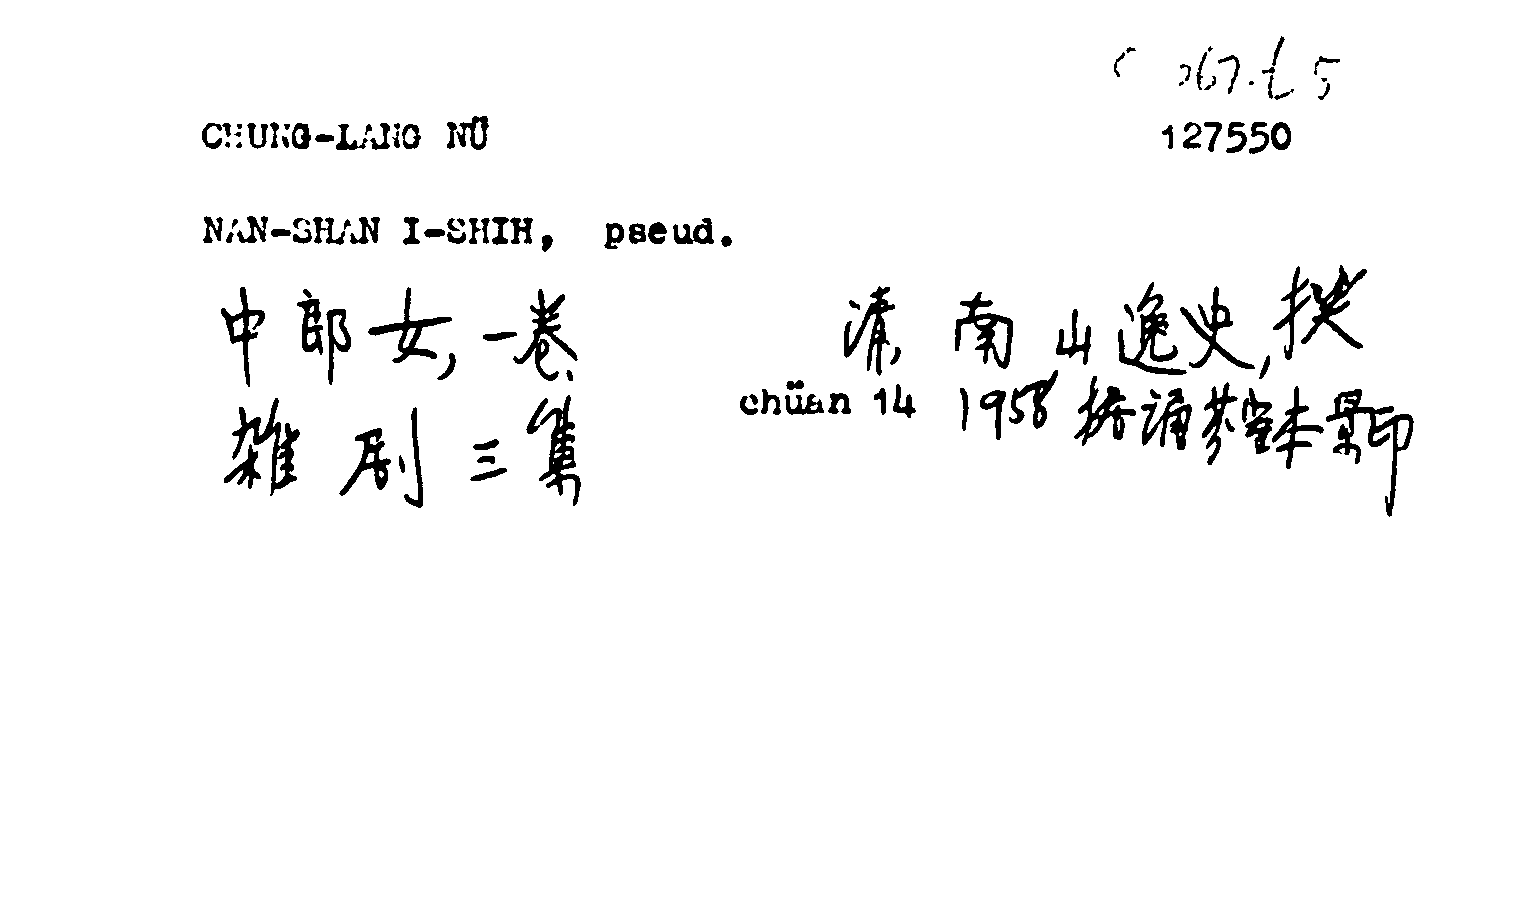 CHUNG-LANG NÜ
127550
NAN-SHAN I-SHIH, pseud.
中郎女,一卷. 清, 南山逸史, 撰
雜剧三集 chüan 14 1958 据诵芬室本景印